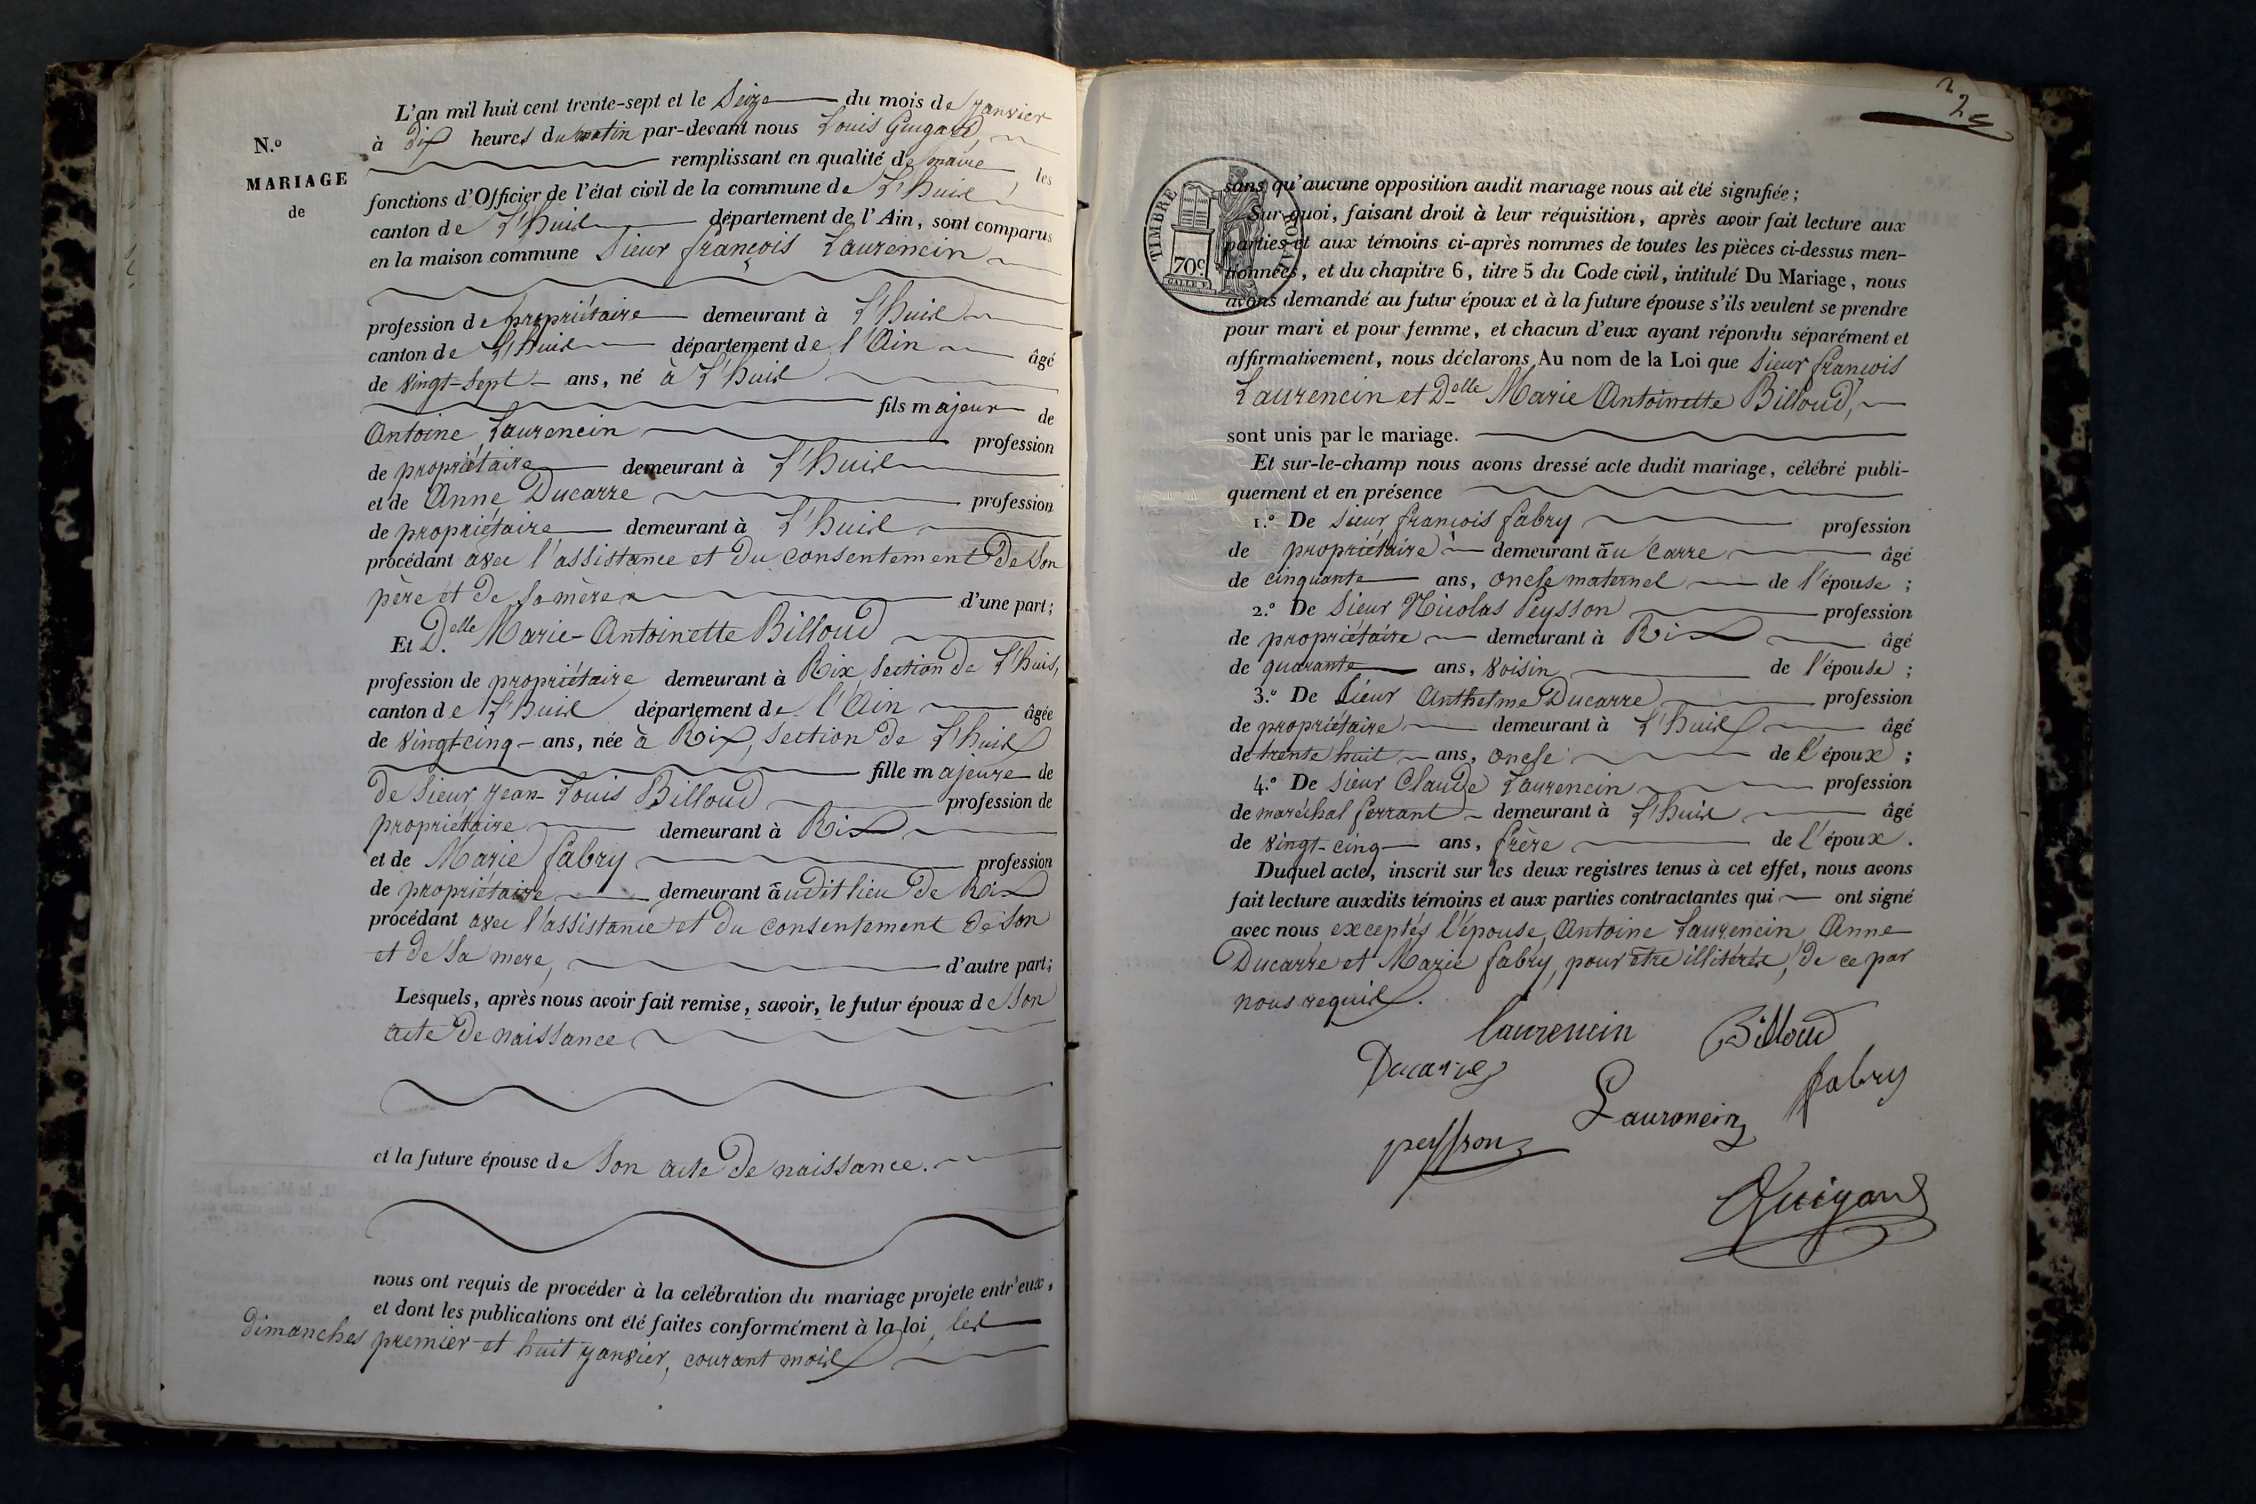 N.o
MARIAGE
de
L'an mil huit cent trente-sept et le Seize du mois de janvier
à dix heures du matin par-devant nous Louis Guigard,
remplissant en qualité de maire les
fonctions d'Officier de l'état civil de la commune de L'huis,
canton de L'huis département de l'Ain, sont comparus
en la maison commune Sieur françois Laurencin
profession de propriétaire demeurant à L'huis
canton de L'huis département de l'Ain âgé
de vingt-sept ans, né à L'huis
fils majeur de
Antoine Laurencin profession
de propriétaire demeurant à L'huis
et de Anne Ducarre profession
de propriétaire demeurant à L'huis
procédant avec l'assistance et du consentement de son
père et de sa mère d'une part;
Et D.elle Marie-Antoinette Billoud
profession de propriétaire demeurant à Rix, section de L'huis,
canton de L'huis département de l'Ain âgée
de vingt-cinq ans, née à Rix, section de L'huis
fille majeure de
de Sieur jean-Louis Billoud profession de
propriétaire demeurant à Rix
et de Marie fabry profession
de propriétaire demeurant audit lieu de Rix
procédant avec l'assistance et du consentement de son
et de sa mere, d'autre part;
Lesquels, après nous avoir fait remise, savoir, le futur époux de son
acte de naissance
et la future épouse de son acte de naissance.
nous ont requis de procéder à la celébration du mariage projete entr'eux,
et dont les publications ont été faites conformément à la loi, les
dimanches premier et huit janvier, courant mois
2
TIMBRE ROYAL
70c
sans qu'aucune opposition audit mariage nous ait été signifiée;
Sur quoi, faisant droit à leur réquisition, après avoir fait lecture aux
parties et aux témoins ci-après nommes de toutes les pièces ci-dessus men-
tionnées, et du chapitre 6, titre 5 du Code civil, intitulé Du Mariage, nous
avons demandé au futur époux et à la future épouse s'ils veulent se prendre
pour mari et pour femme, et chacun d'eux ayant répondu séparément et
affirmativement, nous déclarons Au nom de la Loi que Sieur françois
Laurencin et D.elle Marie Antoinette Billoud,
sont unis par le mariage.
Et sur-le-champ nous avons dressé acte dudit mariage, célébré publi-
quement et en présence
1.o De Sieur françois fabry profession
de propriétaire demeurant au Carre âgé
de cinquante ans, oncle maternel de l'épouse;
2.o De Sieur Nicolas Peysson profession
de propriétaire demeurant à Rix âgé
de quarante ans, voisin de l'épouse;
3.o De Sieur Anthelme Ducarre profession
de propriétaire demeurant à L'huis âgé
de trente huit ans, oncle de l'époux;
4.o De Sieur Claude Laurencin profession
de maréchal ferrant demeurant à L'huis âgé
de vingt-cinq ans, frère de l'époux.
Duquel acte, inscrit sur les deux registres tenus à cet effet, nous avons
fait lecture auxdits témoins et aux parties contractantes qui ont signé
avec nous exceptés l'épouse, Antoine Laurencin, Anne
Ducarre et Marie fabry, pour être illitérés, de ce par
nous requis.
Laurencin Billoud
Ducarre
Laurencin fabry
peysson
Guigard